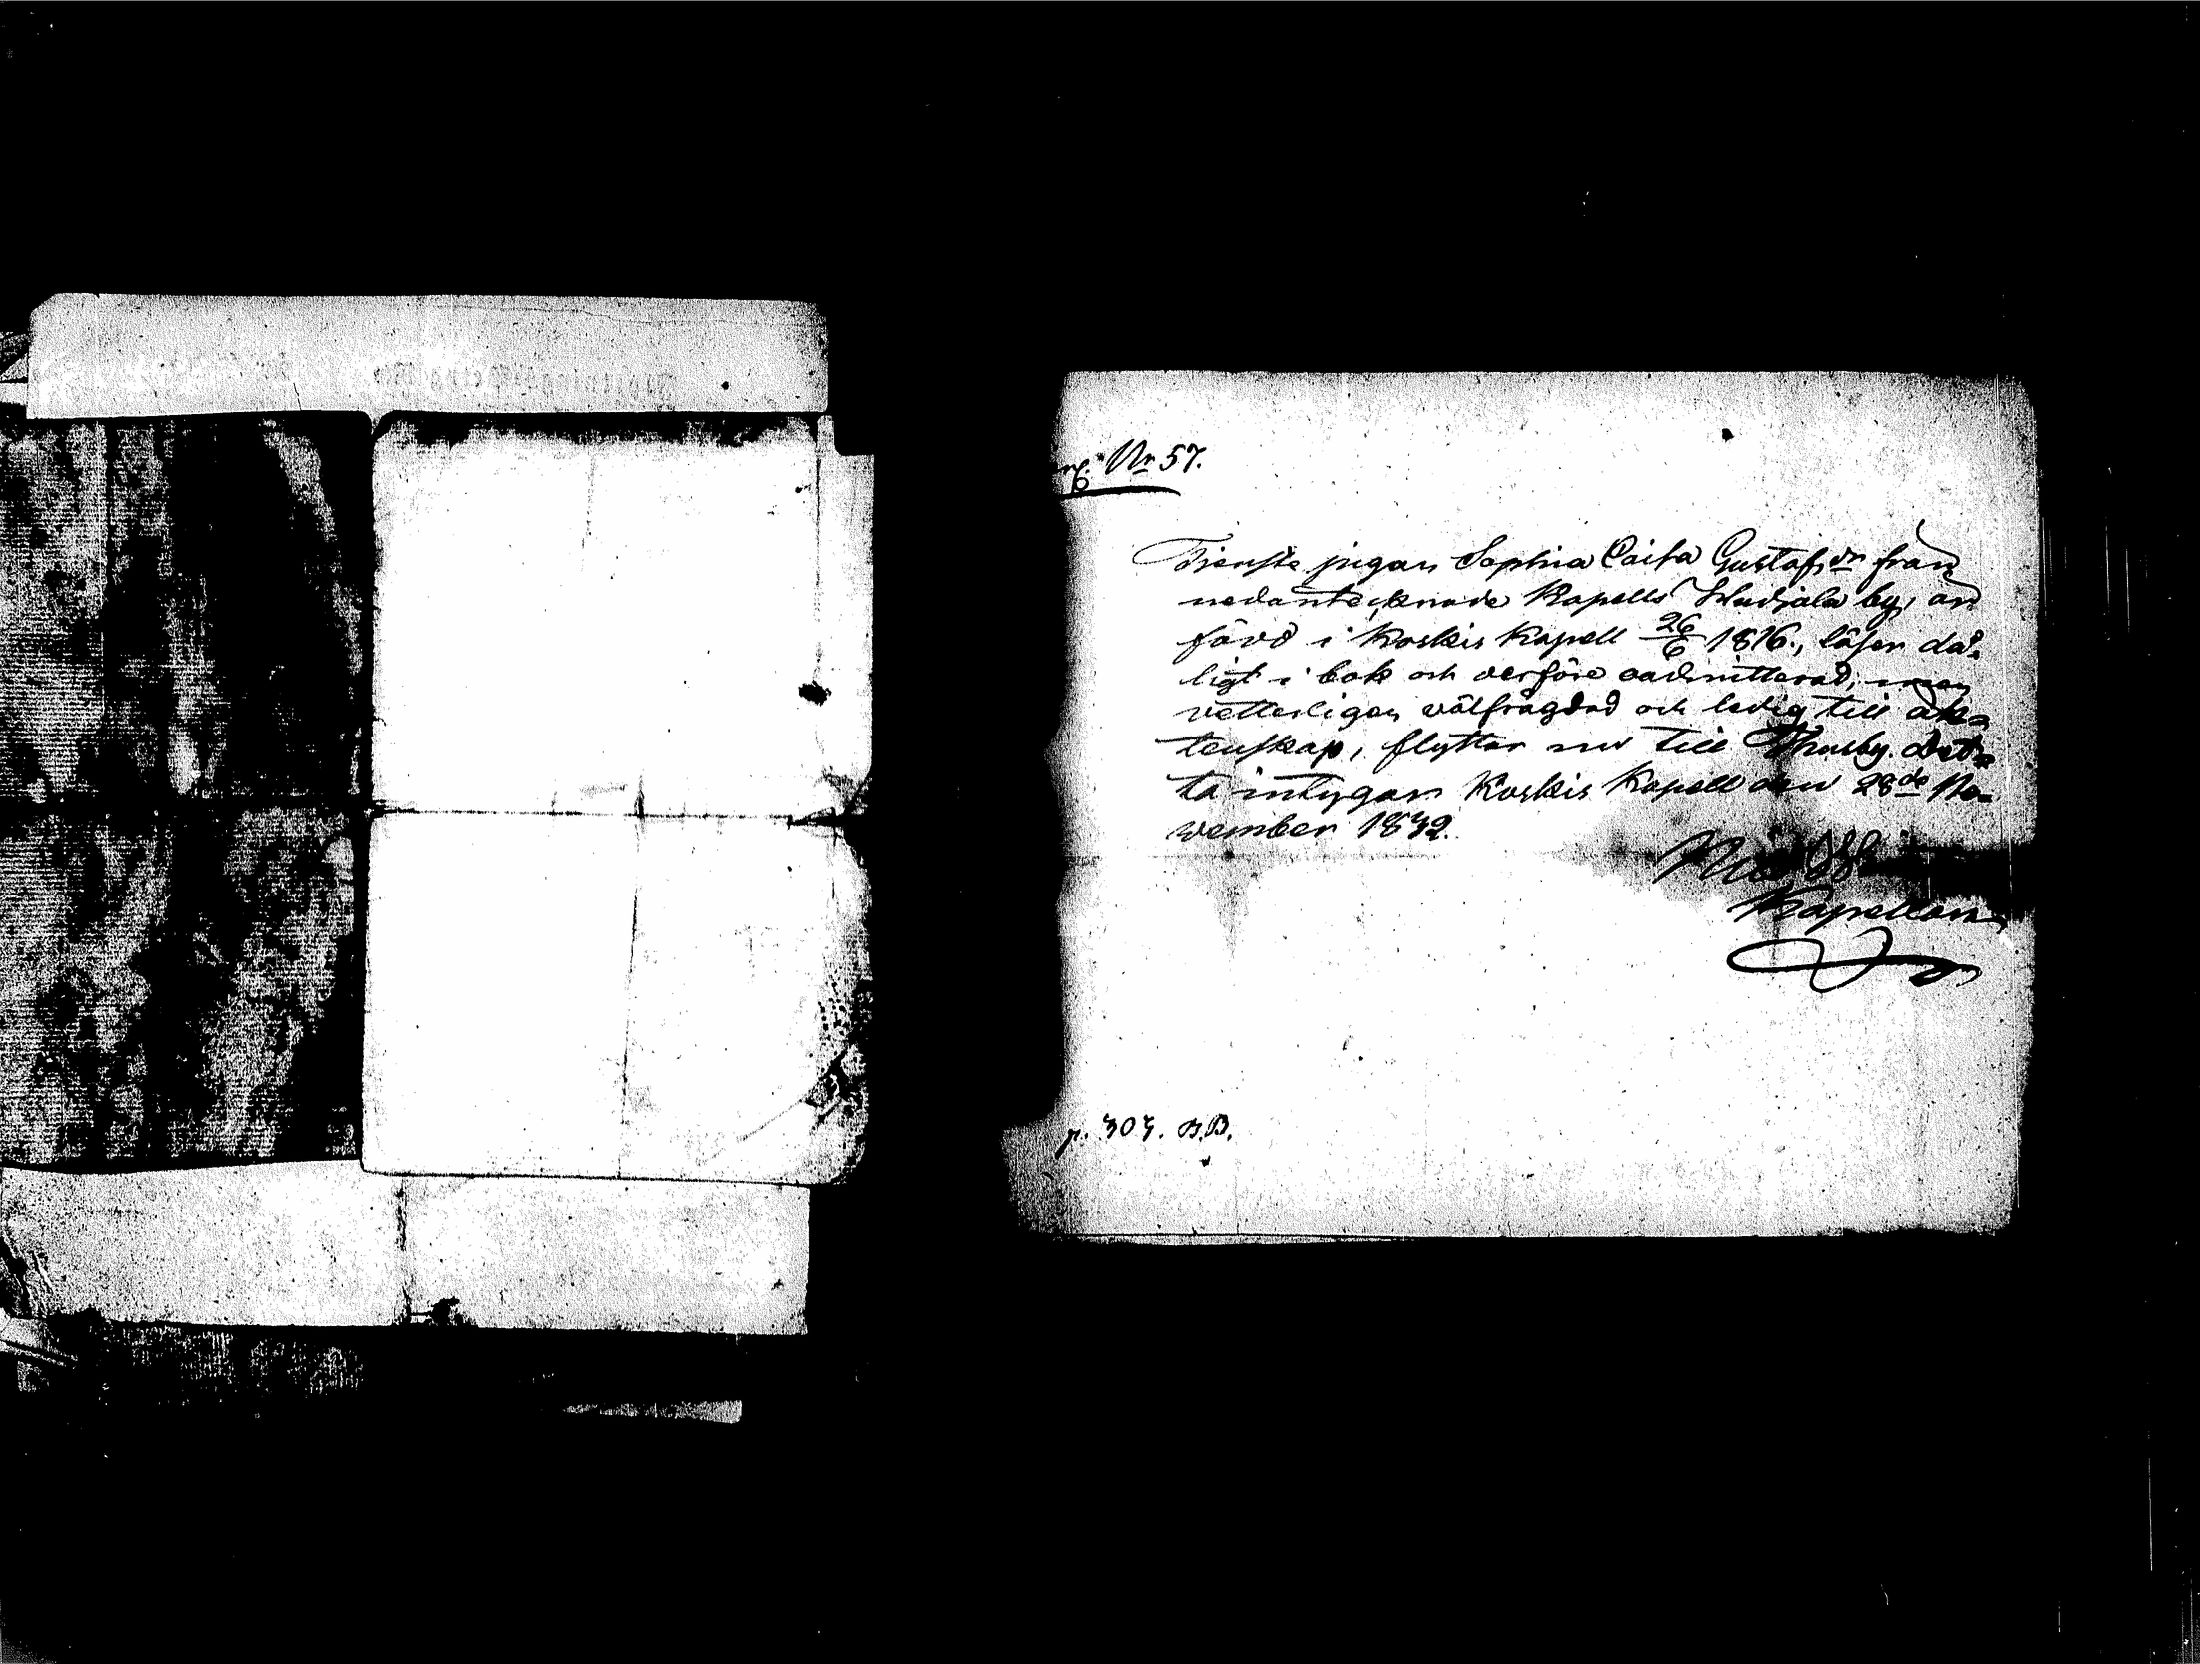 Nr 57.
Tienste pigan Sophia Caisa Gustafsdr från
nedantecknade Kapells Hudjala by, an
förd i Koskis Kapell 26/6 1816., läser då-
ligt i bok och derföre oadmitterad,
vetterligen välfrägdad och ledig till äk-
tenskap, flyttar nu till Thusby. Det-
ta intygar Koskis Kapell den 28de No-
vember 1832.
Kapellan
p. 303. B.B.